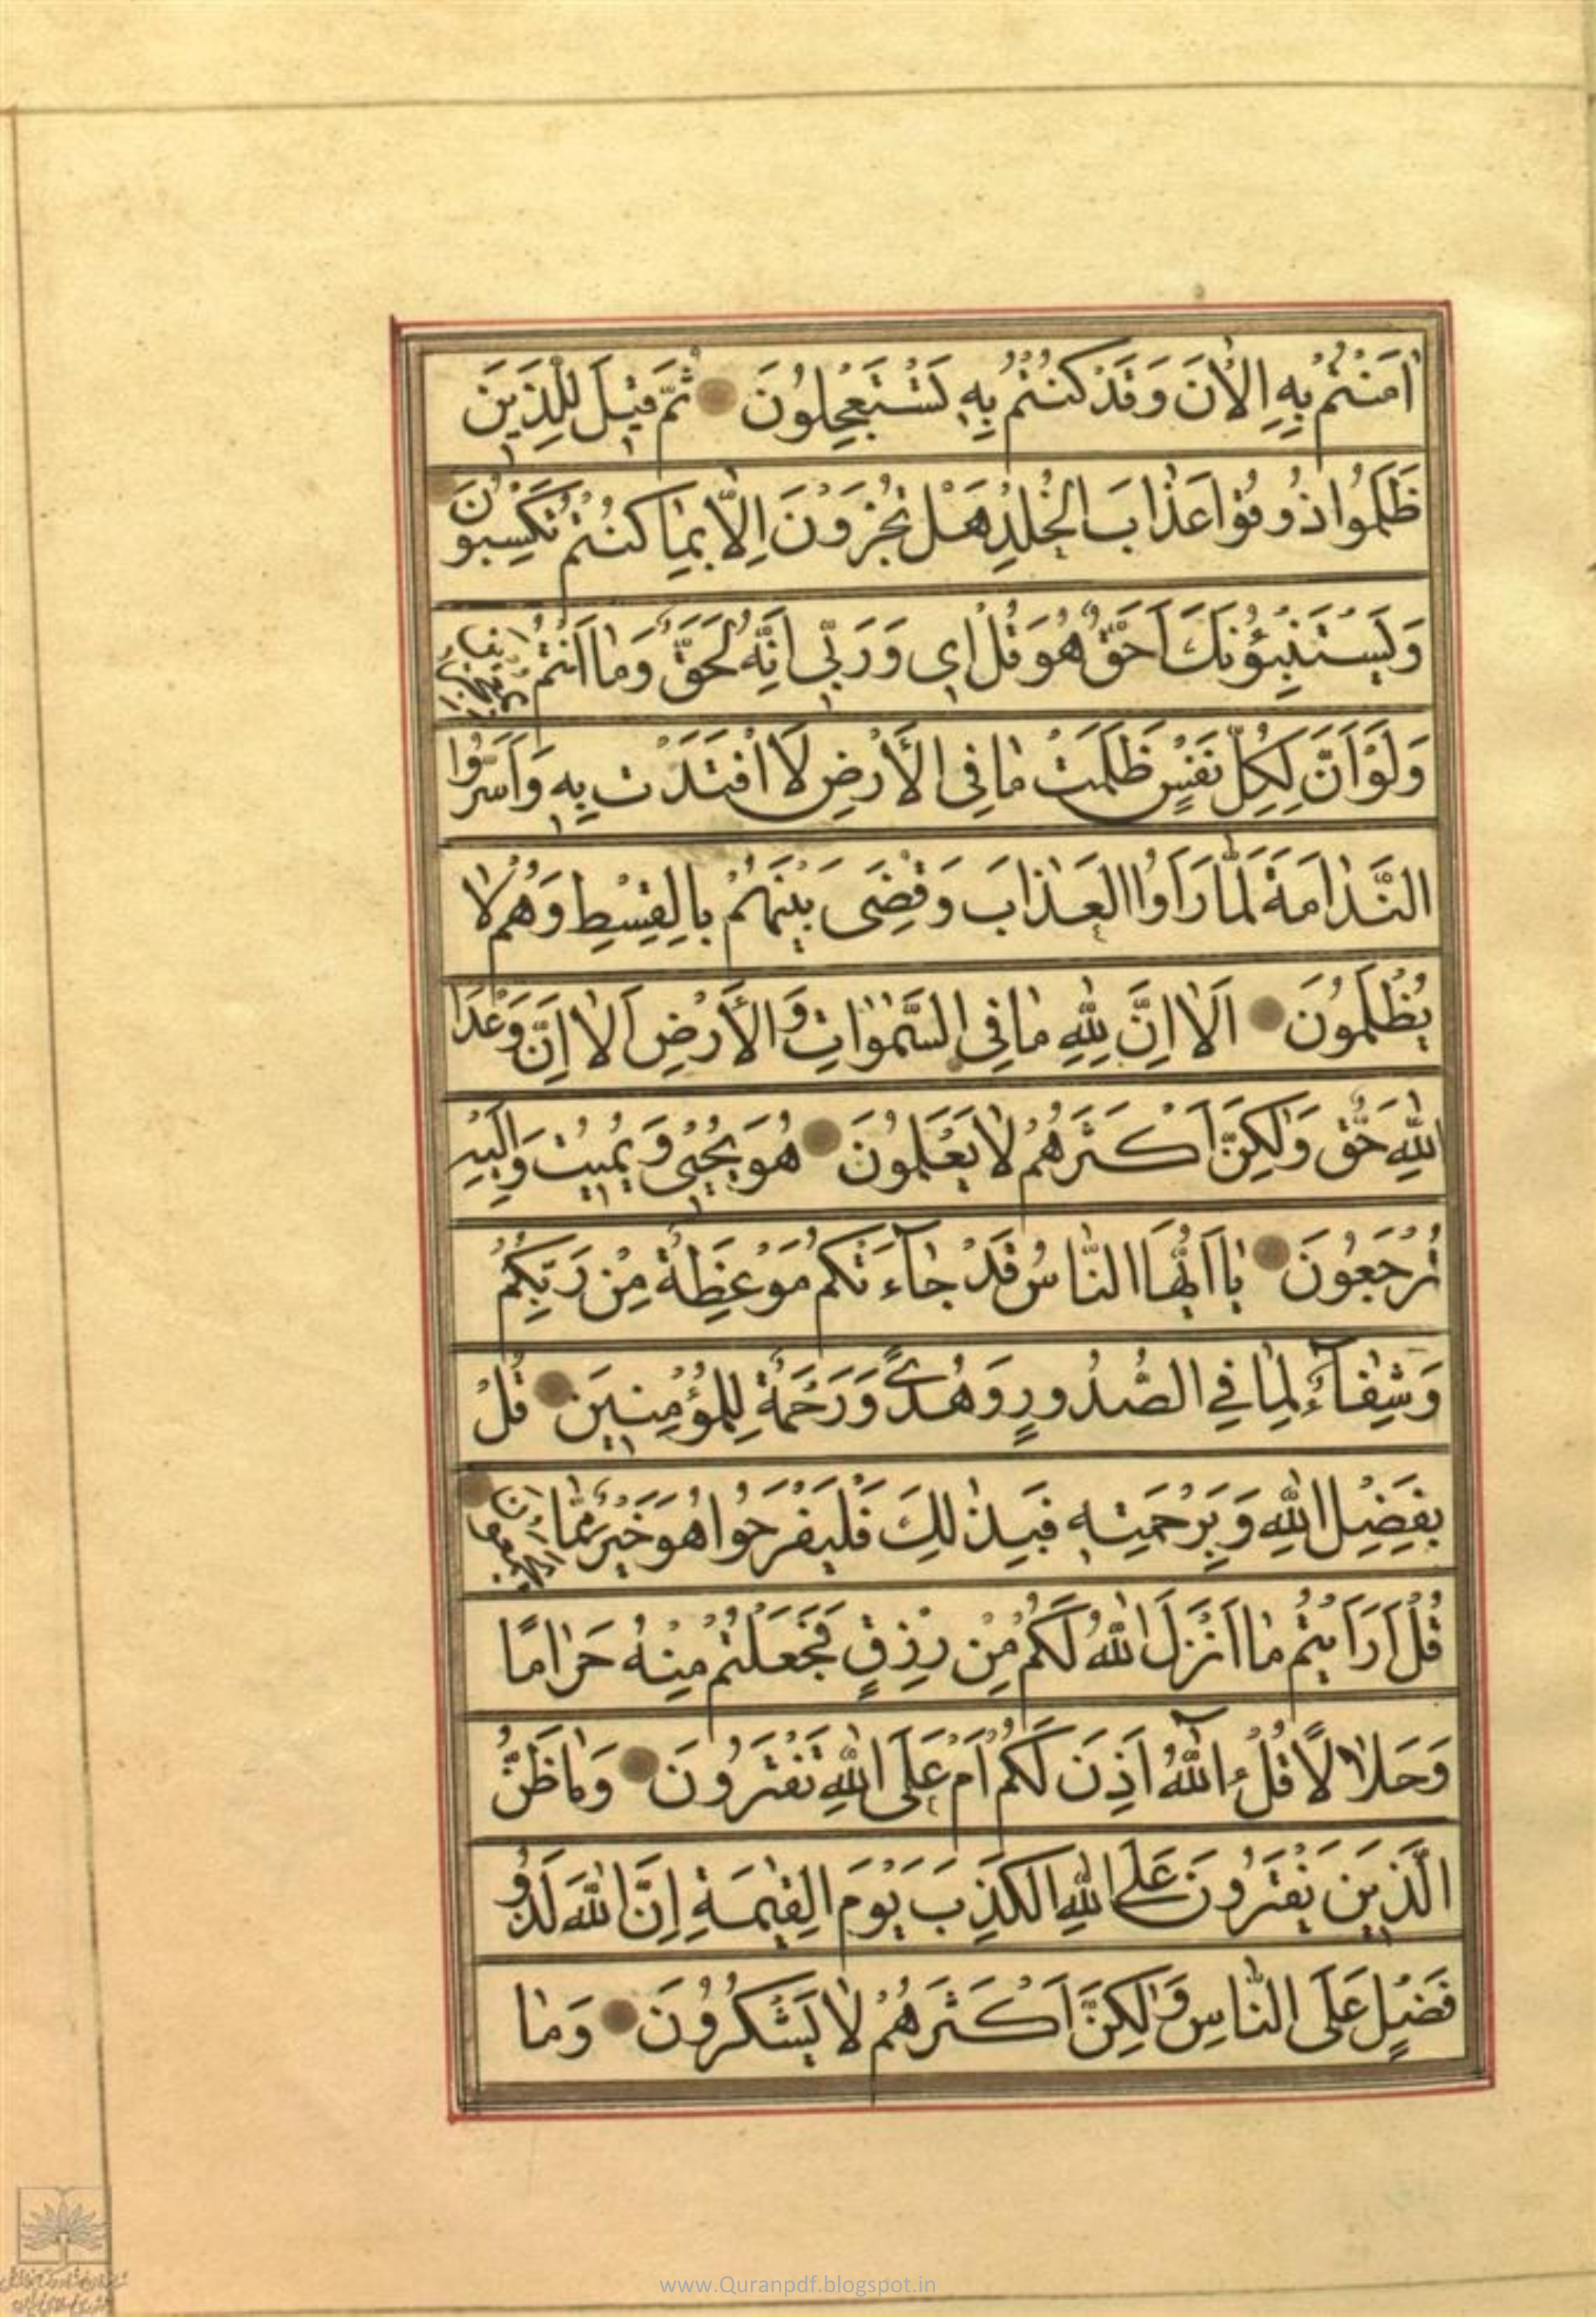 اٰمَنْتُمْ بِهِ الْاٰنَ وَقَدْ كُنْتُمْ بِهِ تَسْتَعْجِلُونَ ثُمَّ قِيلَ لِلَّذِينَ
ظَلَمُوا ذُوقُوا عَذَابَ الْخُلْدِ هَلْ تُجْزَوْنَ اِلَّا بِمَا كُنْتُمْ تَكْسِبُونَ
وَيَسْتَنْبِؤُنَكَ اَحَقٌّ هُوَ قُلْ اِي وَرَبِّي اِنَّهُ لَحَقٌّ وَمَا اَنْتُمْ بِمُعْجِزِينَ
وَلَوْ اَنَّ لِكُلِّ نَفْسٍ ظَلَمَتْ مَا فِي الْاَرْضِ لَافْتَدَتْ بِهِ وَاَسَرُّوا
النَّدَامَةَ لَمَّا رَاَوُا الْعَذَابَ وَقُضِيَ بَيْنَهُمْ بِالْقِسْطِ وَهُمْ لَا
يُظْلَمُونَ اَلَا اِنَّ لِلّٰهِ مَا فِي السَّمٰوَاتِ وَالْاَرْضِ اَلَا اِنَّ وَعْدَ
اللّٰهِ حَقٌّ وَلٰكِنَّ اَكْثَرَهُمْ لَا يَعْلَمُونَ هُوَ يُحْيِي وَيُمِيتُ وَاِلَيْهِ
تُرْجَعُونَ يَا اَيُّهَا النَّاسُ قَدْ جَآءَتْكُمْ مَوْعِظَةٌ مِنْ رَبِّكُمْ
وَشِفَآءٌ لِمَا فِي الصُّدُورِ وَهُدًى وَرَحْمَةٌ لِلْمُؤْمِنِينَ قُلْ
بِفَضْلِ اللّٰهِ وَبِرَحْمَتِهِ فَبِذٰلِكَ فَلْيَفْرَحُوا هُوَ خَيْرٌ مِمَّا يَجْمَعُونَ
قُلْ اَرَاَيْتُمْ مَا اَنْزَلَ اللّٰهُ لَكُمْ مِنْ رِزْقٍ فَجَعَلْتُمْ مِنْهُ حَرَامًا
وَحَلَالًا قُلْ آللّٰهُ اَذِنَ لَكُمْ اَمْ عَلَى اللّٰهِ تَفْتَرُونَ وَمَا ظَنُّ
الَّذِينَ يَفْتَرُونَ عَلَى اللّٰهِ الْكَذِبَ يَوْمَ الْقِيٰمَةِ اِنَّ اللّٰهَ لَذُو
فَضْلٍ عَلَى النَّاسِ وَلٰكِنَّ اَكْثَرَهُمْ لَا يَشْكُرُونَ وَمَا
www.Quranpdf.blogspot.in